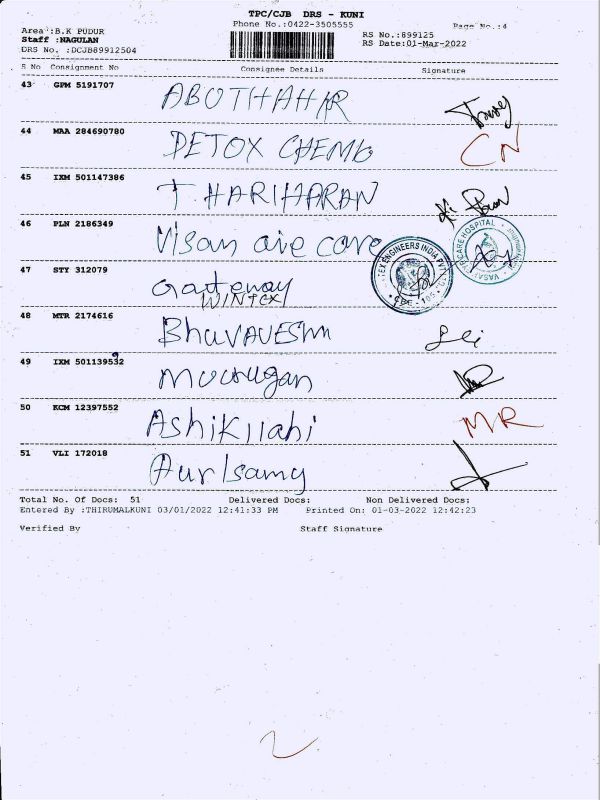 TPC/CJB DRS - KUNI
Phone No.:0422-3505555
Page No.:4
Area :B.K PUDUR
Staff :NAGULAN
DRS No. :DCJB89912504
RS No.:899125
RS Date:01-Mar-2022
S No Consignment No Consignee Details Signature
43 GPM 5191707 ABUTHAHIR
44 MAA 284690780 DETOX CHEMB CN
45 IXM 501147386 T HARIHARAN
46 PLN 2186349 Visan aie care
47 STY 312079 Gateway
WINTEX
TEX ENGINEERS INDIA PVT. LTD.
CBE - 105
VASAN EYECARE HOSPITAL
48 MTR 2174616 BHUVANESH
49 IXM 501139532 Mourugan
50 KCM 12397552 Ashikilahi MR
51 VLI 172018 Aurlsamy
Total No. Of Docs: 51 Delivered Docs: Non Delivered Docs:
Entered By :THIRUMALKUNI 03/01/2022 12:41:33 PM Printed On: 01-03-2022 12:42:23
Verified By Staff Signature
2